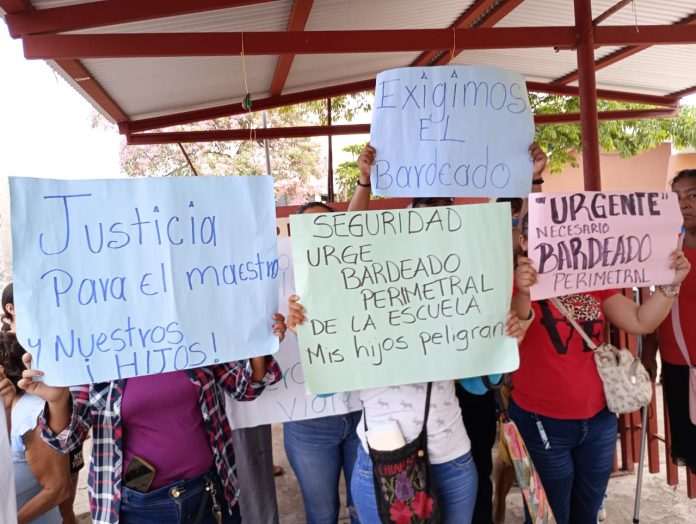 Justicia
Para El maestro
y Nuestros
¡HIJOS!
SEGURIDAD
URGE
BARDEADO
PERIMETRAL
DE LA ESCUELA
Mis hijos peligran
Exigimos
EL
Bardeado
"URGENTE"
NECESARIO
BARDEADO
PERIMETRAL